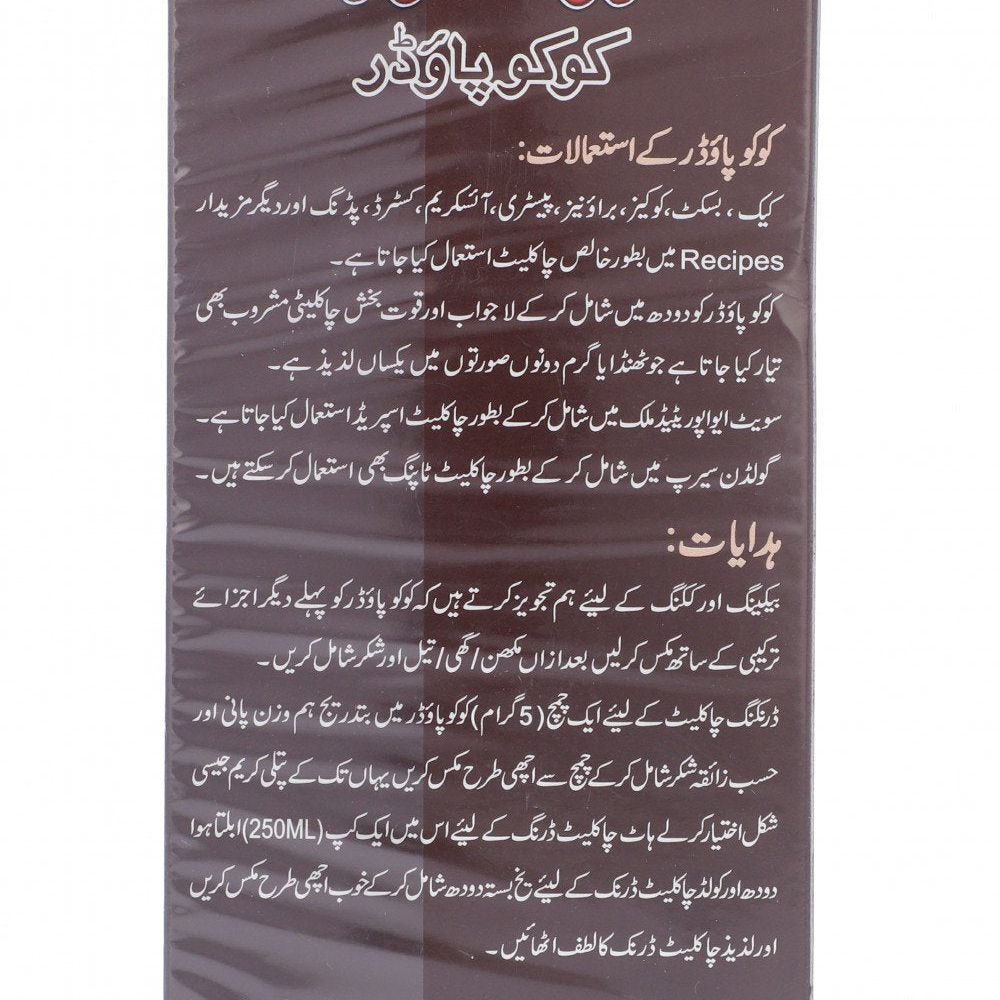 کوکو پاؤڈر
کوکو پاؤڈر کے استعمالات:
کیک ، بسکٹ،کوکیز، براؤنیز، پیسٹری،آئسکریم،کسٹرڈ، پڈنگ اور دیگر مزیدار
Recipes میں بطور خالص چاکلیٹ استعمال کیا جاتا ہے۔
کوکو پاؤڈر کو دودھ میں شامل کر کے لا جواب اور قوت بخش چاکلیٹی مشروب بھی
تیار کیا جاتا ہے جو ٹھنڈا یا گرم دونوں صورتوں میں یکساں لذیذ ہے۔
سویٹ ایواپوریٹیڈ ملک میں شامل کر کے بطور چاکلیٹ اسپریڈ استعمال کیا جاتا ہے۔
گولڈن سیرپ میں شامل کر کے بطور چاکلیٹ ٹاپنگ بھی استعمال کر سکتے ہیں۔
ہدایات:
بیکینگ اور ککنگ کے لیئے ہم تجویز کرتے ہیں کہ کوکو پاؤڈر کو پہلے دیگر اجزائے
ترکیبی کے ساتھ مکس کر لیں بعد ازاں مکھن/گھی/تیل اور شکر شامل کریں۔
ڈرنکنگ چاکلیٹ کے لیئے ایک چمچ (5 گرام) کوکو پاؤڈر میں بتدریج ہم وزن پانی اور
حسب زائقہ شکر شامل کر کے چمچ سے اچھی طرح مکس کریں یہاں تک کے پتلی کریم جیسی
شکل اختیار کر لے ہاٹ چاکلیٹ ڈرنگ کے لیئے اس میں ایک کپ (250ML) ابلتا ہوا
دودھ اور کولڈ چاکلیٹ ڈرنک کے لیئے یخ بستہ دودھ شامل کر کے خوب اچھی طرح مکس کریں
اور لذیذ چاکلیٹ ڈرنک کا لطف اٹھائیں۔